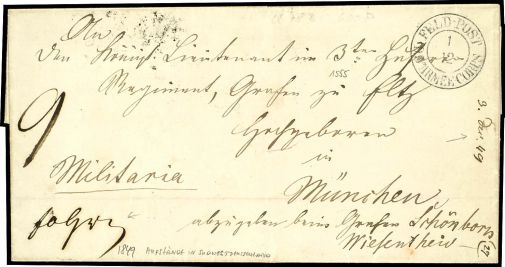 An
den Königl. Lieutenant im 3ten
1555
Regiment, Grafen zu Eltz
Hochgeboren
in
München
Militaria
abzugeben beim Grafen Schönborn
Wiesentheid
9
FELD-POST
1
12
ARMEE CORPS
49
27
1849 AUFSTÄNDE IN SÜDWESTDEUTSCHLAND